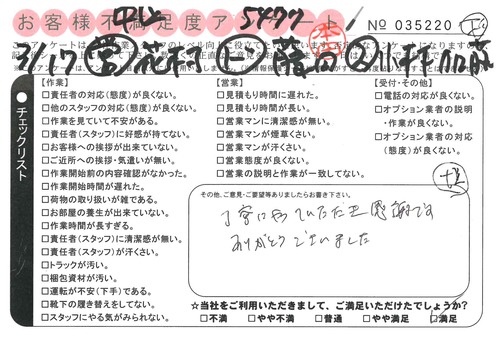 お客様不満足度アンケート
№ 035220
3/17
チェックリスト
【作業】
□責任者の対応(態度)が良くない。
□他のスタッフの対応(態度)が良くない。
□作業を見ていて不安がある。
□責任者(スタッフ)に好感が持てない。
□お客様への挨拶が出来ていない。
□ご近所への挨拶・気遣いが無い。
□作業開始前の内容確認がなかった。
□作業開始時間が遅れた。
□荷物の取り扱いが雑である。
□お部屋の養生が出来ていない。
□作業時間が長すぎる。
□責任者(スタッフ)に清潔感が無い。
□責任者(スタッフ)が汗くさい。
□トラックが汚い。
□梱包資材が汚い。
□運転が不安(下手)である。
□靴下の履き替えをしてない。
□スタッフにやる気がみられない。
【営業】
□見積もり時間に遅れた。
□見積もり時間が長い。
□営業マンに清潔感が無い。
□営業マンが煙草くさい。
□営業マンが汗くさい。
□営業態度が良くない。
□営業の説明と作業が一致してない。
【受付・その他】
□電話の対応が良くない。
□オプション業者の説明
・作業が良くない。
□オプション業者の対応
(態度)が良くない。
その他、ご意見・ご要望等ありましたらお書き下さい。
丁寧にやっていただき感謝です
ありがとうございました
☆当社をご利用いただきまして、ご満足いただけたでしょうか?
□不満 □やや不満 □普通 □やや満足 □満足